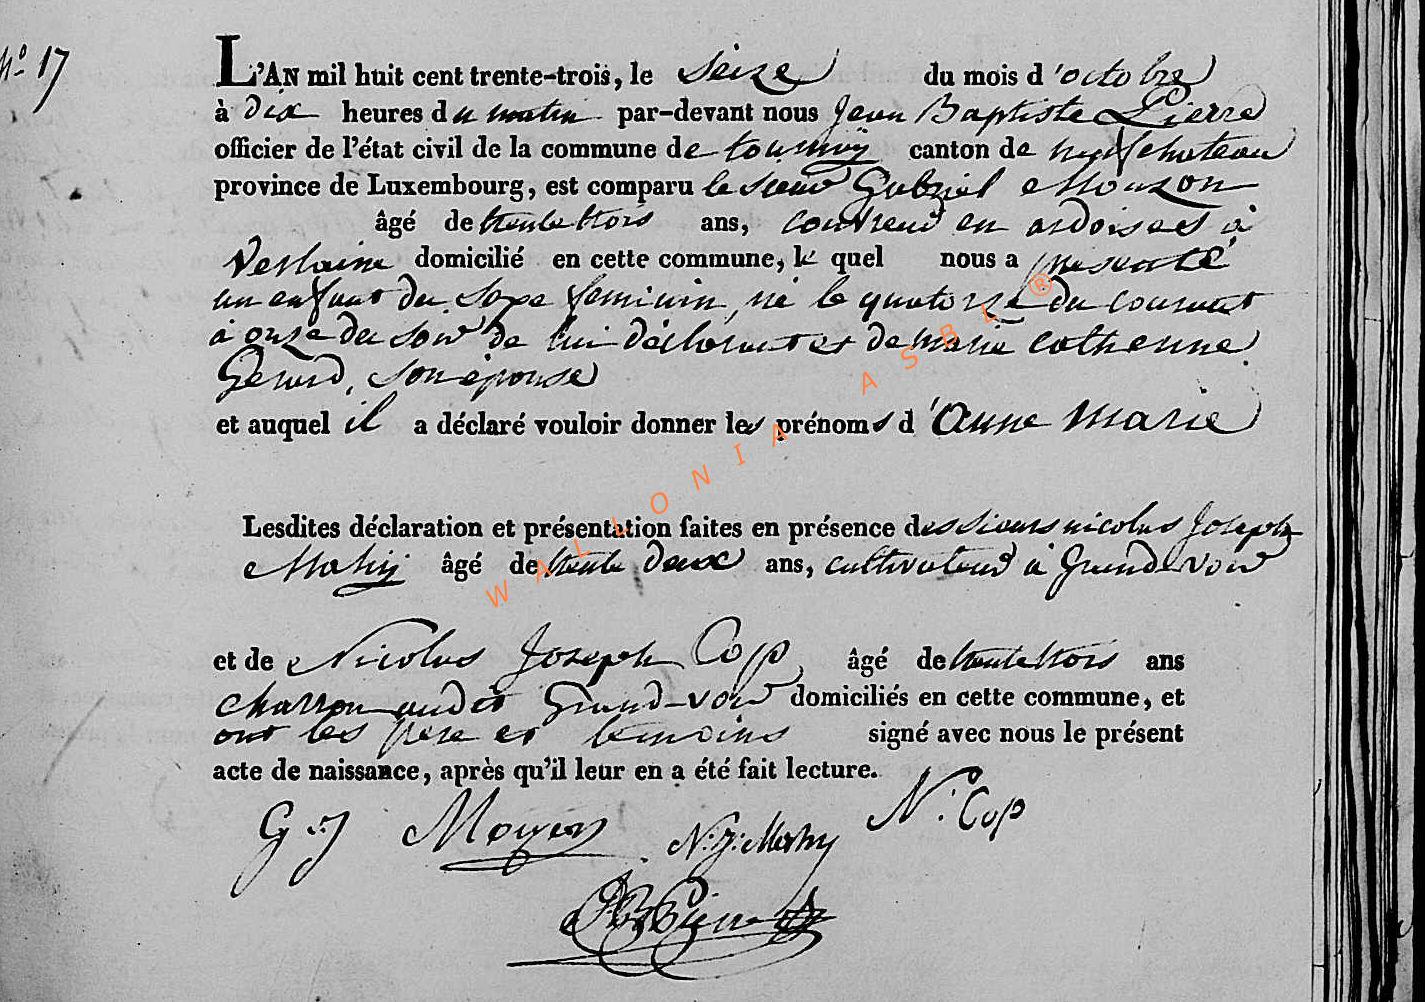 N.º 17
L'AN mil huit cent trente-trois, le seize du mois d'octobre
à dix heures du matin par-devant nous Jean Baptiste Pierre
officier de l'état civil de la commune de tournÿ canton de neufchateau
province de Luxembourg, est comparu le sieur Gabriel Mouzon
âgé de trente trois ans, couvreur en ardoises à
Verlaine domicilié en cette commune, le quel nous a presenté
un enfant du sexe feminin, né le quatorze du courant
à onze du soir de lui déclarant et de marie catherinne
Gerard, son épouse
et auquel il a déclaré vouloir donner les prénoms d'Anne Marie
Lesdites déclaration et présentation faites en présence des sieurs nicolas Joseph
Mahÿ âgé de trente deux ans, cultivateur à Grandvoir
et de Nicolas Joseph Cop, âgé de trente trois ans
charron audit Grand-voir domiciliés en cette commune, et
ont les père et temoins signé avec nous le présent
acte de naissance, après qu'il leur en a été fait lecture.
G J
N. J. Mahy
N. Cop
JB Pierre
WALLONIA ASBL ®